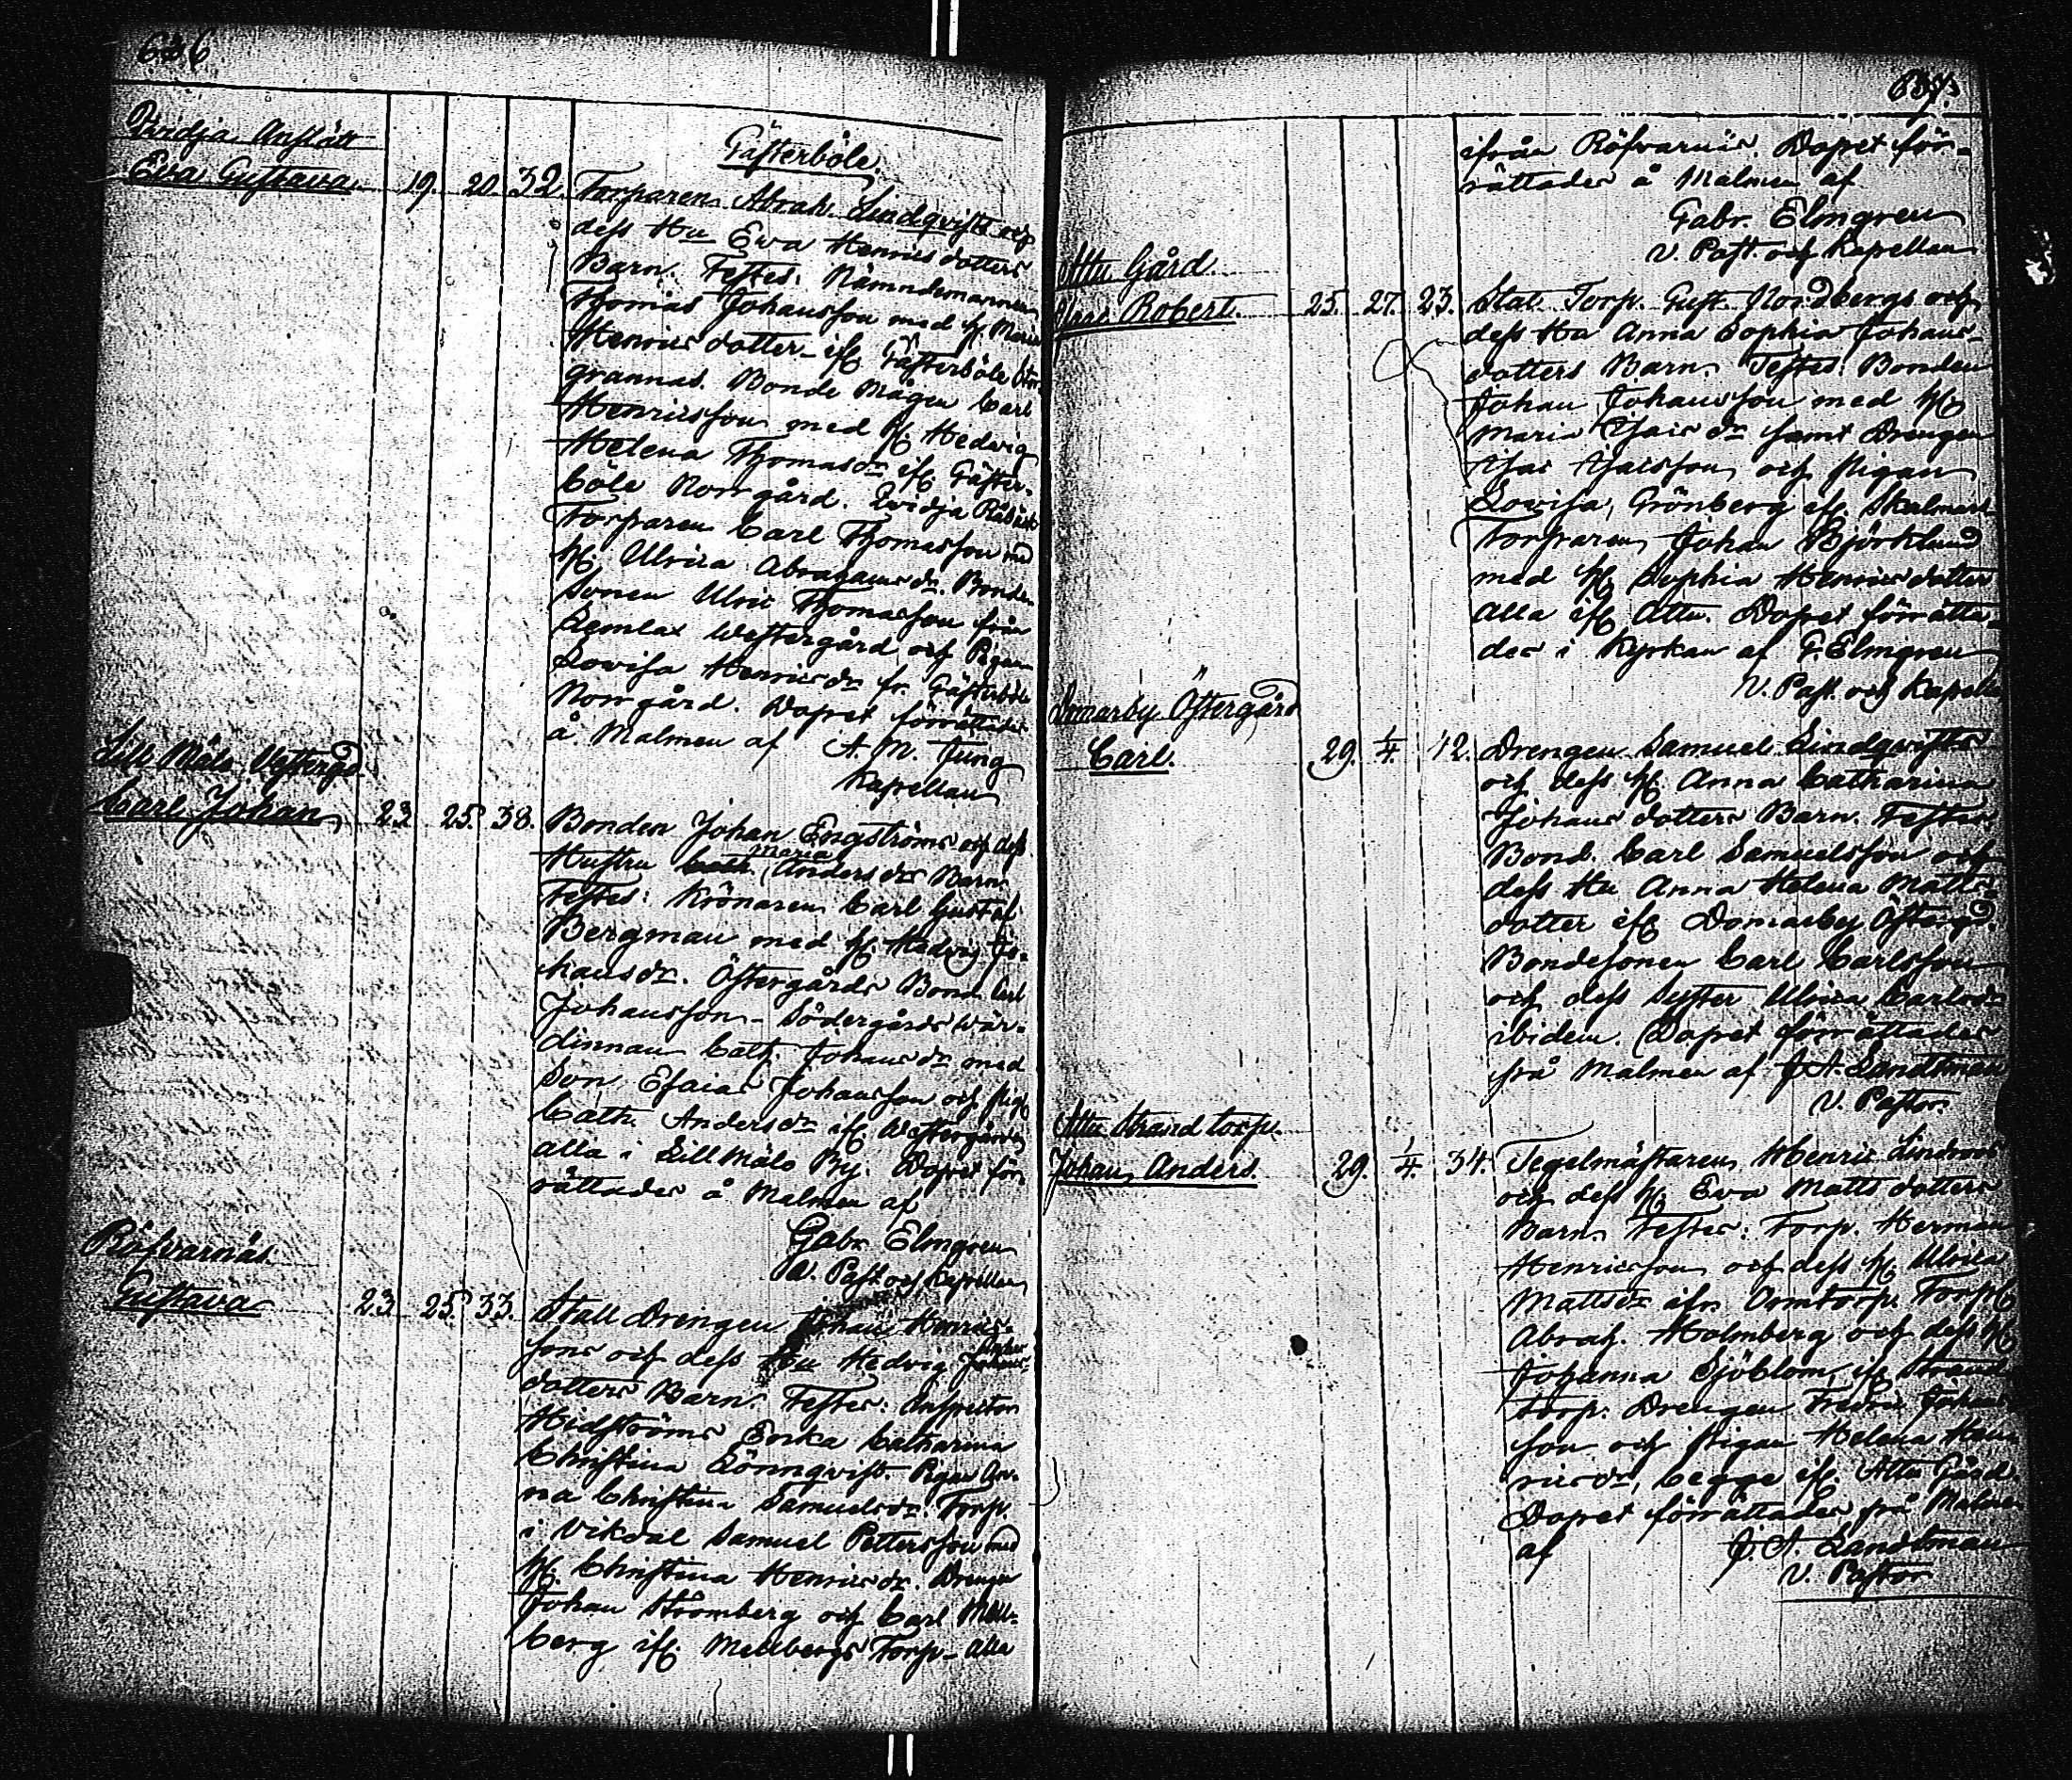 636.
Qvidja Anslått
Gästerböle.
Eva Gustava. 19. 20. 32. Torparen Abrah. Lindqvists och
dess Hu Eva Henricsdotters
Barn. Testes: Nämndemannen
Thomas Johansson med H. Maria
Henricsdotter if. Gästerböle
grannas. Bonde Mågen Carl
Henricsson med H. Hedvig
Helena Thomasdr if. Gäster-
böle Norrgård. Qvidja
Torparen Carl Thomasson med
H. Ulrica Abrahamsdr. Bonde
Sonen Ulric Thomasson från
Lemlax Westergård och Pigan
Lovisa Henricsdr fr. Gästerböle
Norrgård. Dopet förrättades
å Malmen af A. M. Jung
Kapellan
Lill Mälo Westergd.
Carl Johan 23. 25. 38. Bonden Johan Engströms och dess
Hustru Cath. Maria Andersdrs Barn
Testes: Krönaren Carl Gustaf
Bergman med H. Hedvig Jo-
hansdr. Östergårds Bond. Carl
Johansson - Södergårds Wär-
dinnan Cath. Johansdr med
Son Esaias Johansson och pig.
Cath. Andersdr if. Westergården
alla i Lill Mälo By. Dopet för-
rättades å Malmen af
Gabr. Elmgren
V. Past. och Kapellan
Röfvarnäs.
Gustava 23. 25. 33. Stall Drengen Johan Henrics-
sons och dess Hu Hedvig Johans-
dotters Barn. Testes: Inspector
Hidströms Enka Catharina
Christina Lönnqvist. Pigan An-
na Christina Samuelsdr. Torp.
i Vikdal Samuel Pettersson med
H. Christina Henricsdr. Drengen
Johan Strömberg och Carl Mell-
berg if. Mellbergs Torp - alla
637.
ifrån Röfvarnäs. Dopet för-
rättades å Malmen af
Gabr. Elmgren
V. Past. och Kapellan
Attu Gård.
Isaac Robert. 25. 27. 23. Stat. Torp. Gust. Nordbergs och
dess Hu Anna Sophia Johans-
dotters Barn. Testes: Bonden
Johan Johansson med H.
Maria Isacsdr samt Drengen
Isac Isacsson och Pigan
Lovisa Grönberg if. Skalmars
Torparen Johan Björklund
med H. Sophia Henricsdotter
alla if. Attu. Dopet förrätta-
des i Kyrkan af G. Elmgren
V. Past. och Kapellan
Domarby Östergård
Carl. 29. 1/4. 42. Drengen Samuel Lindqvists
och dess H. Anna Catharina
Johans dotters Barn. Testes.
Bond. Carl Samuelsson och
dess Hu Anna Helena Matts-
dotter if. Domarby Östergd.
Bondesonen Carl Carlsson
och dess syster Ulrica Carlsdr
ibidem. Dopet förrättades
på Malmen af J. A. Sandtman
V. Pastor.
Attu Strand torp.
Johan Anders. 29. 1/4. 34. Tegelmästaren Henric Lindroos
och dess H. Eva Matts dotters
Barn. Testes: Torp. Herman
Henricsson och dess H. Ulrica
Mattsdr ifr. Ormtorp. Torp.
Abrah. Holmberg och dess H.
Johanna Sjöblom, if. Strand
torp. Drengen Fredric Johans-
son och Pigan Helena Hen-
ricsdr, begge if. Attu Gård.
Dopet förrättades på Malmen
af J. A. Sandtman
V. Pastor